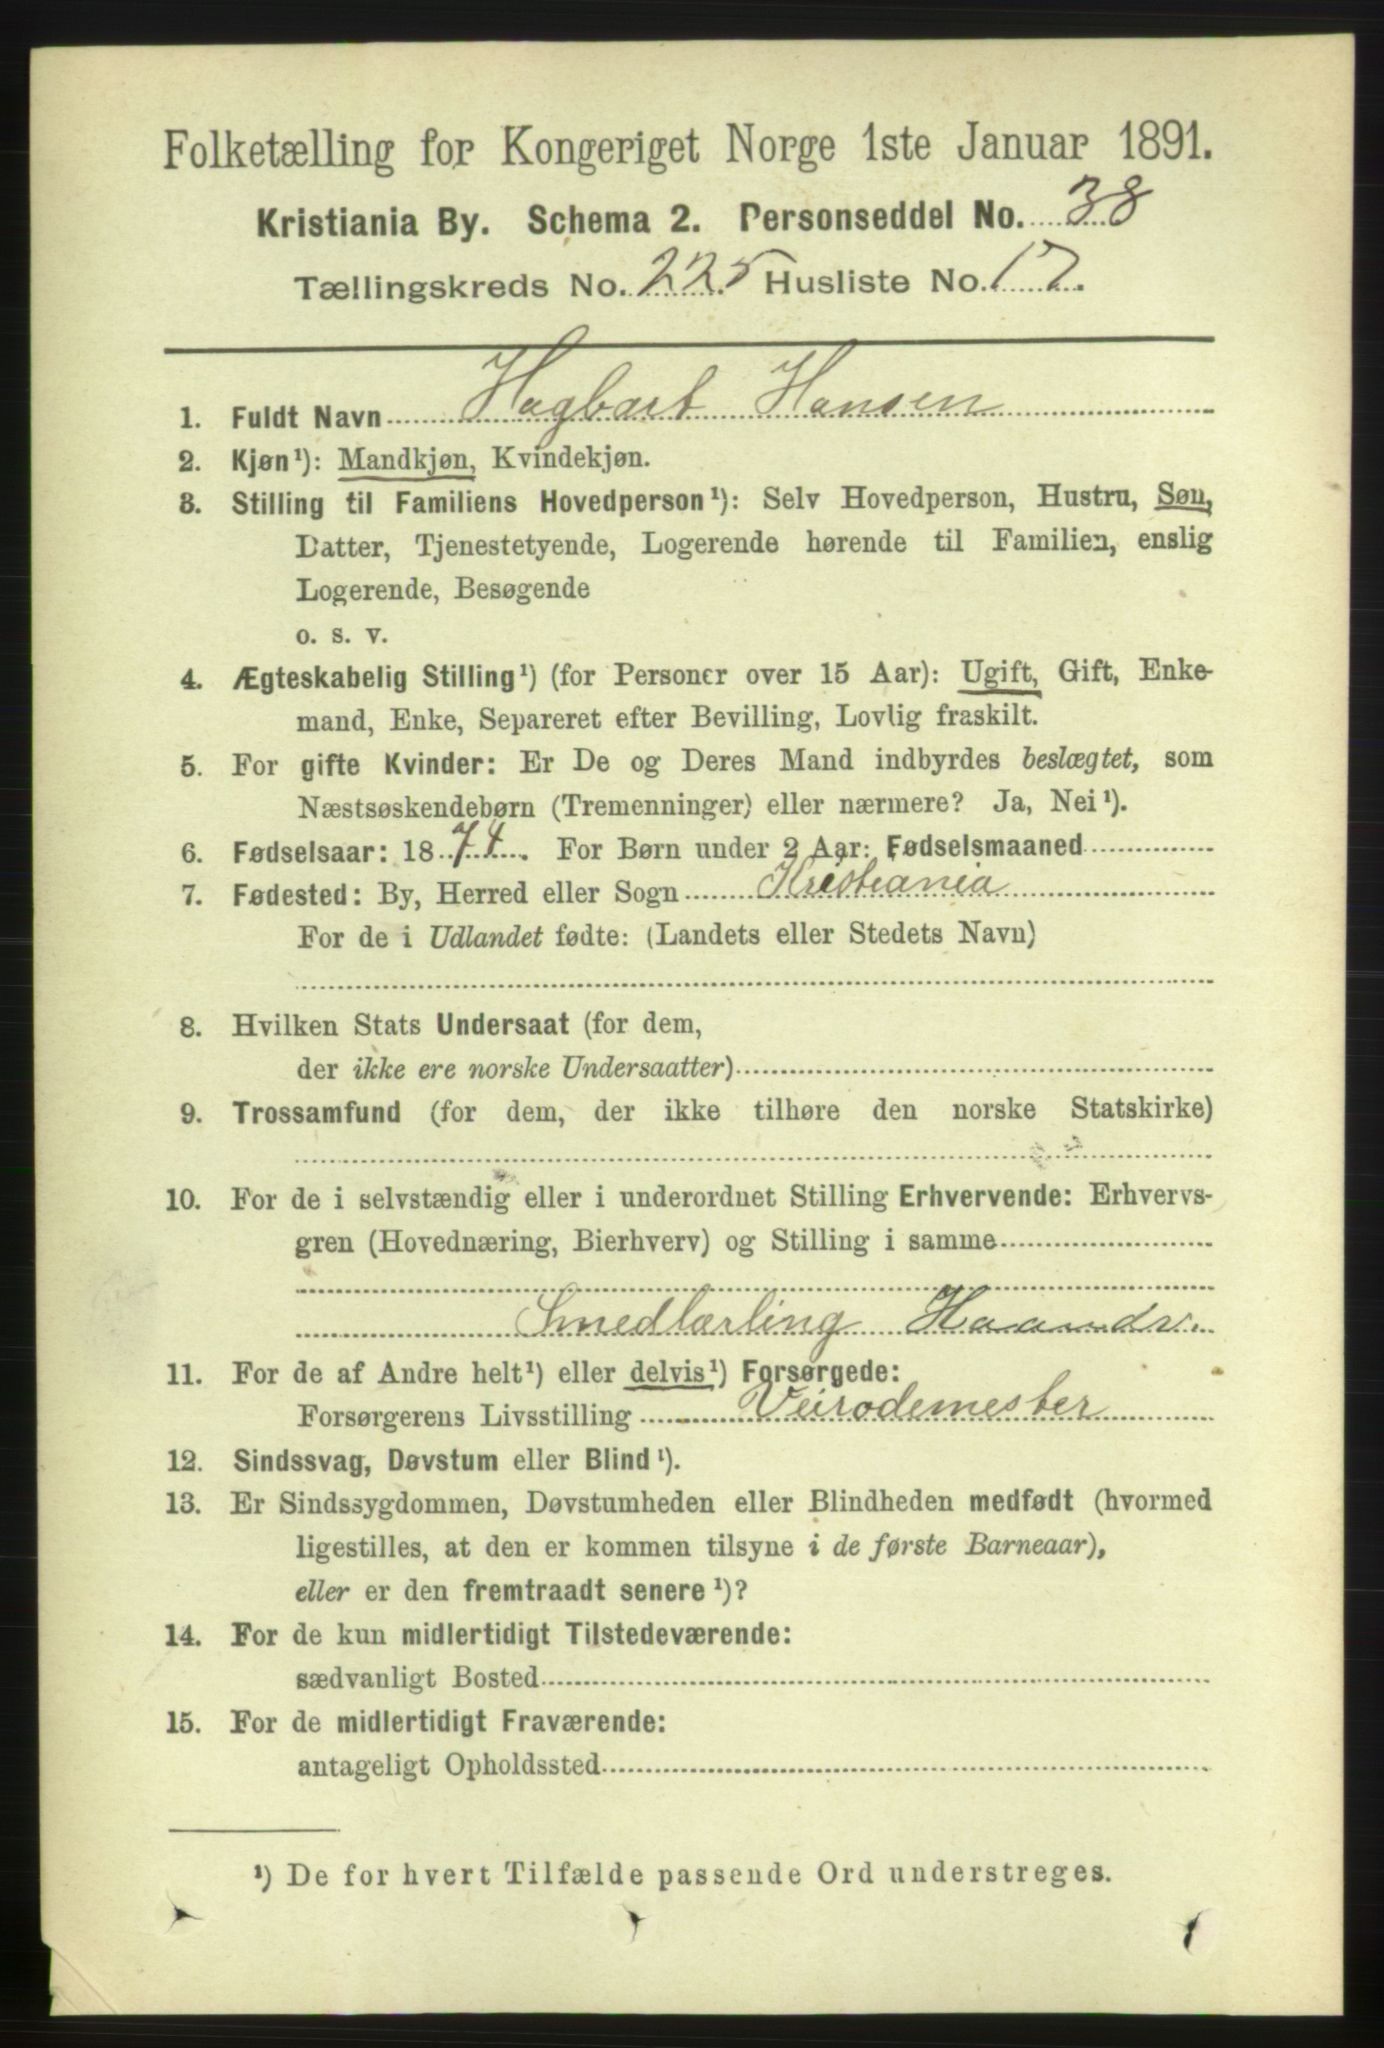 Folketælling for Kongeriget Norge 1ste Januar 1891.
Kristiania By. Schema 2. Personseddel No. 38
Tællingskreds No. 225 Husliste No. 17.
1. Fuldt Navn Hagbart Hansen
2. Kjøn¹): Mandkjøn, Kvindekjøn.
3. Stilling til Familiens Hovedperson¹): Selv Hovedperson, Hustru, Søn,
Datter, Tjenestetyende, Logerende hørende til Familien, enslig
Logerende, Besøgende
o. s. v.
4. Ægteskabelig Stilling¹) (for Personer over 15 Aar): Ugift, Gift, Enke-
mand, Enke, Separeret efter Bevilling, Lovlig fraskilt.
5. For gifte Kvinder: Er De og Deres Mand indbyrdes beslægtet, som
Næstsøskendebørn (Tremenninger) eller nærmere? Ja, Nei¹).
6. Fødselsaar: 1874. For Børn under 2 Aar: Fødselsmaaned
7. Fødested: By, Herred eller Sogn Kristiania
For de i Udlandet fødte: (Landets eller Stedets Navn)
8. Hvilken Stats Undersaat (for dem,
der ikke ere norske Undersaatter)
9. Trossamfund (for dem, der ikke tilhøre den norske Statskirke)
10. For de i selvstændig eller i underordnet Stilling Erhvervende: Erhvervs-
gren (Hovednæring, Bierhverv) og Stilling i samme
Smedlærling Haandv.
11. For de af Andre helt¹) eller delvis¹) Forsørgede:
Forsørgerens Livsstilling Veirodemester
12. Sindssvag, Døvstum eller Blind¹).
13. Er Sindssygdommen, Døvstumheden eller Blindheden medfødt (hvormed
ligestilles, at den er kommen tilsyne i de første Barneaar),
eller er den fremtraadt senere¹)?
14. For de kun midlertidigt Tilstedeværende:
sædvanligt Bosted
15. For de midlertidigt Fraværende:
antageligt Opholdssted
¹) De for hvert Tilfælde passende Ord understreges.